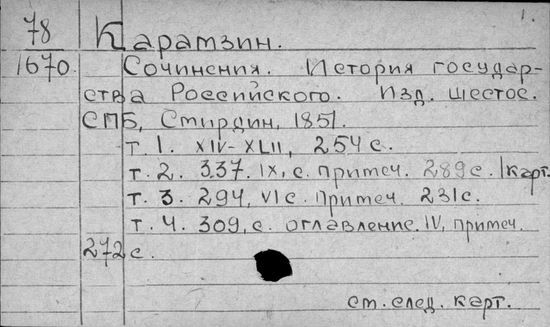 1.
78 Карамзин.
1670 Сочинения. История государ-
ства Российского. Изд. шестое.
СПБ, Стирдин, 1851.
т. 1. XIV-XLII, 254 с.
т. 2. 337. IX, с. примеч. 289 с. 1 карт.
т. 3. 294, VI с. примеч. 231 с.
т. 4. 309, с. оглавление. IV, примеч.
272 с.
см. след. карт.